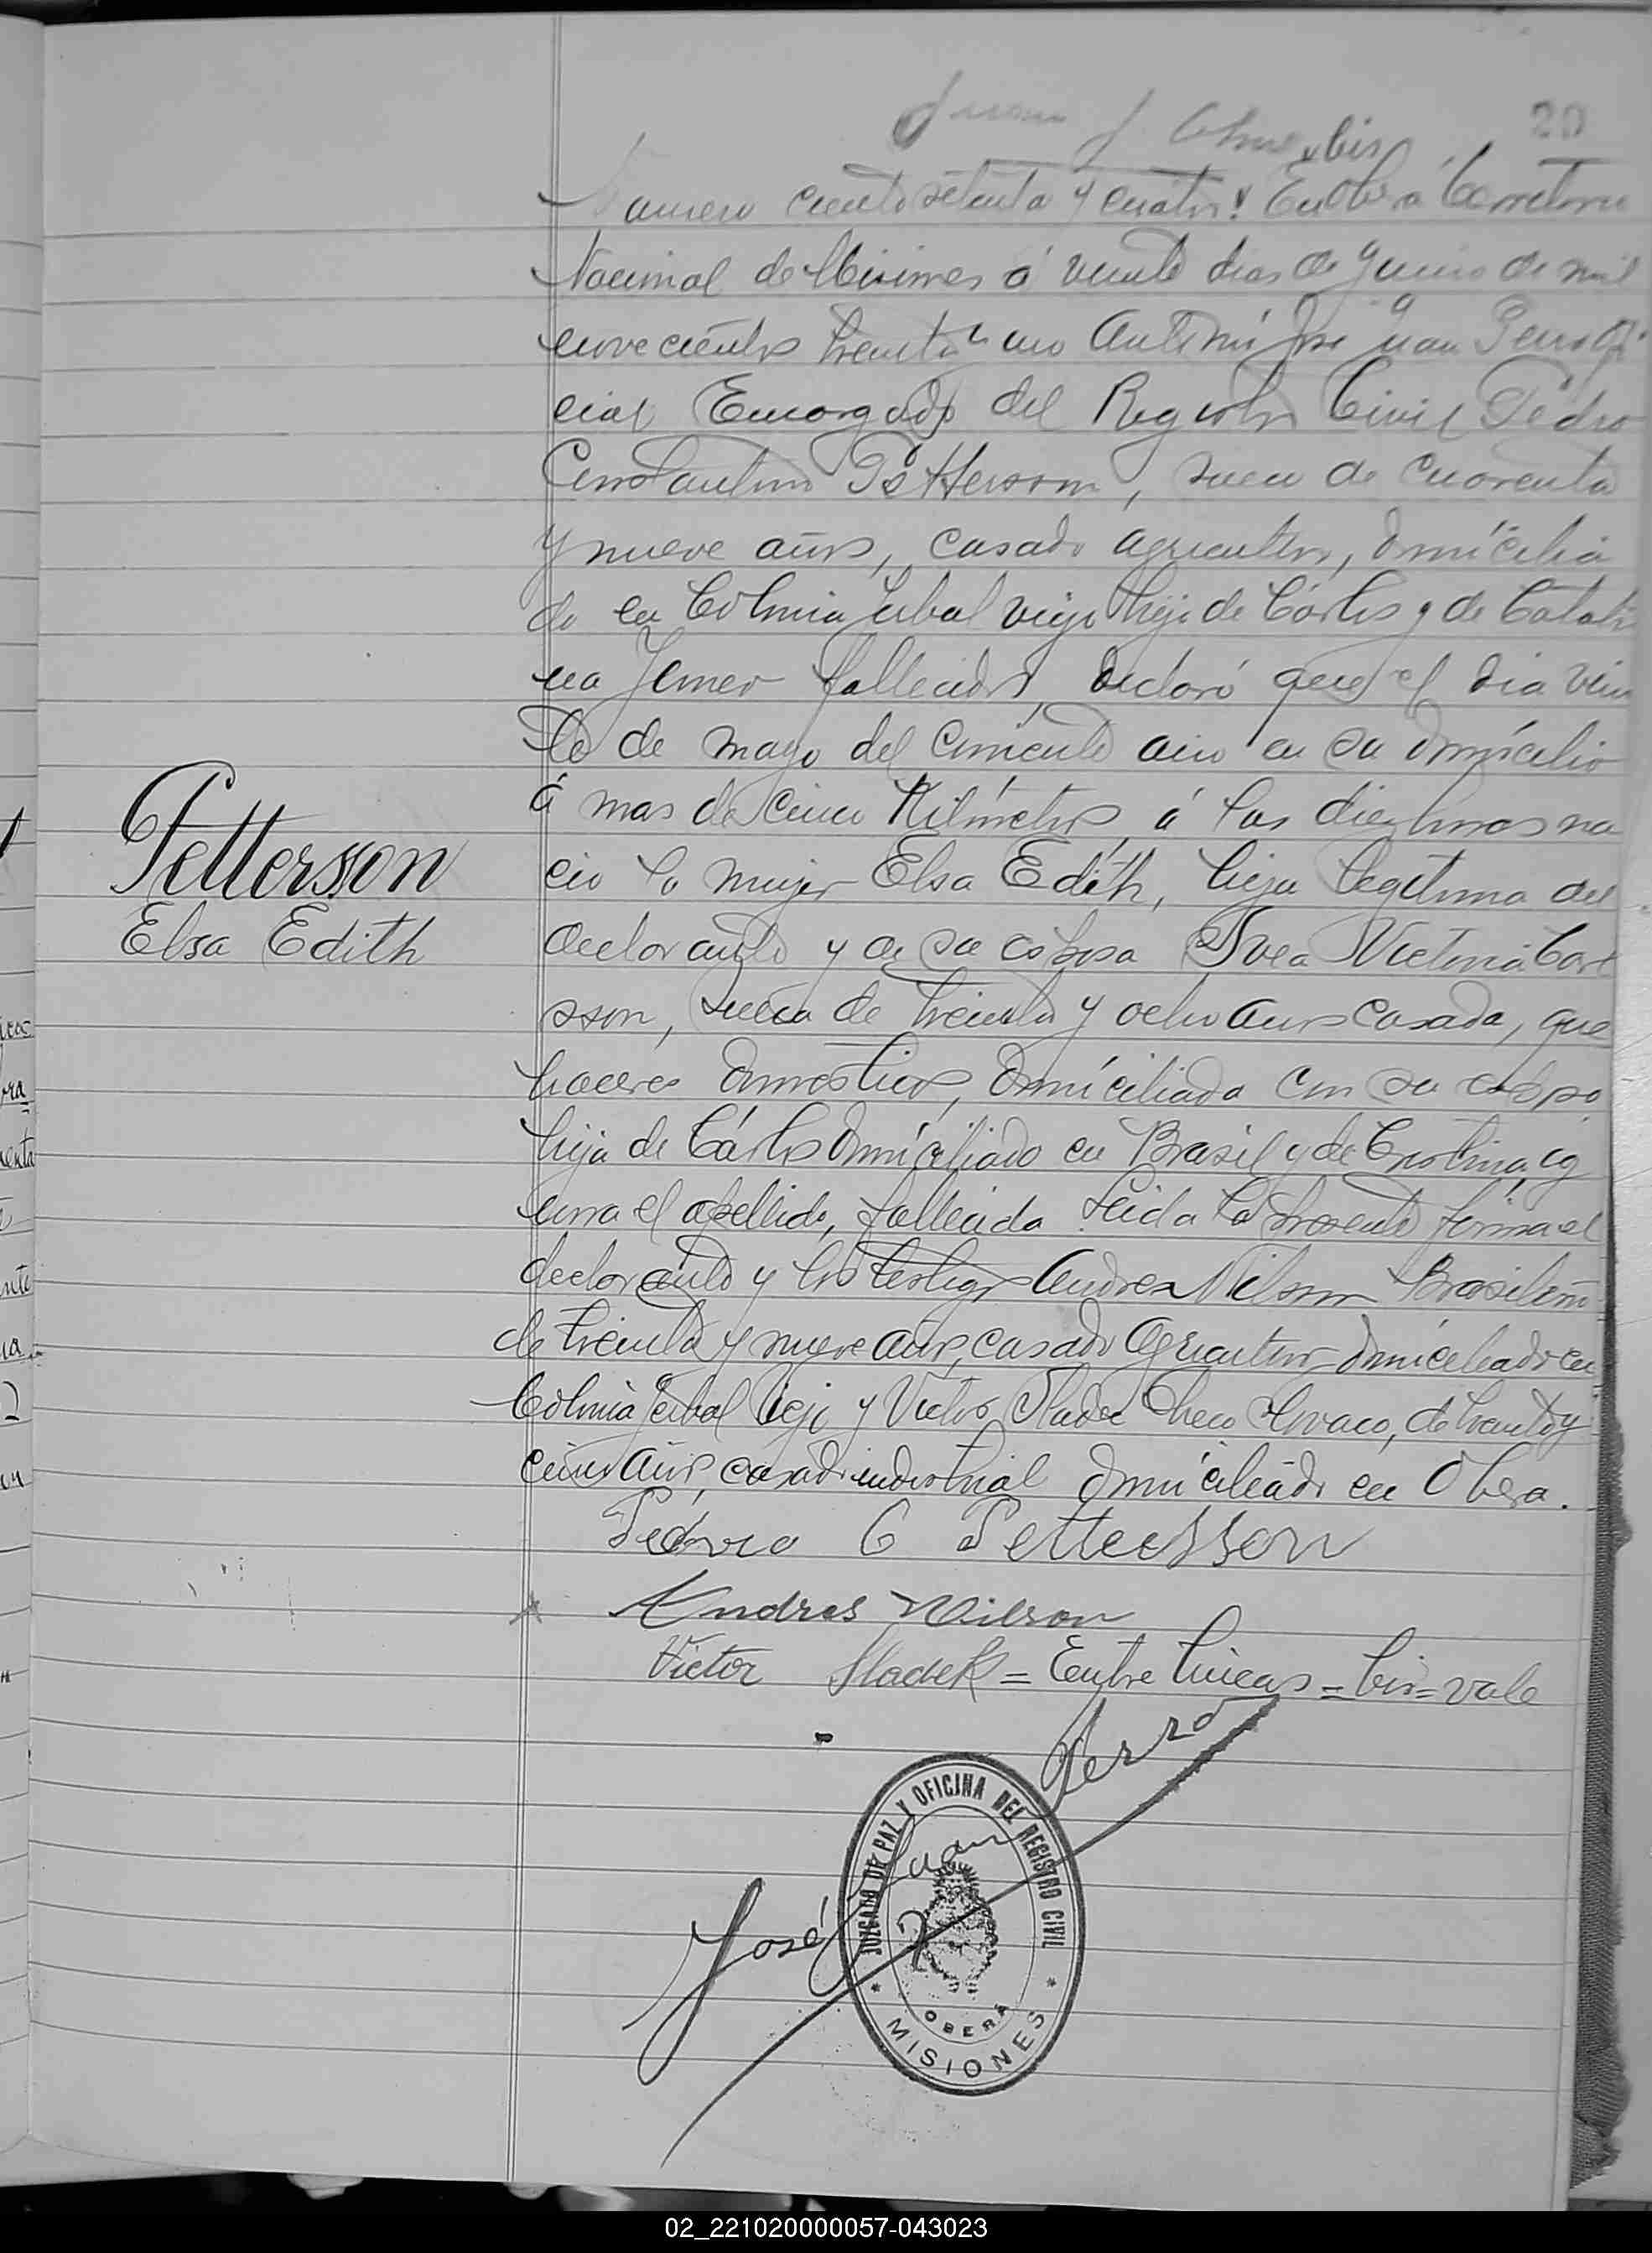 20
bis
Numero ciento setenta y cuatro. En Oberá Territorio
Nacional de Misiones á veinte dias de Junio de mil
novecientos treinta y uno Ante mi José Juan Perro Ofi
cial Encargado del Registro Civil Pedro
Constantino Pettersson, sueco de cuarenta
y nueve años, casado agricultor, domicilia
do en Colonia Yerbal viejo hijo de Cárlos y de Catali
na fallecidos, declaró que el dia vein
te de mayo del corriente año en su domicilio
á mas de cinco Kilómetros, á las diez horas na
cio la mujer Elsa Edith, hija legitima del
Petterson
Elsa Edith
declarante y de su esposa Svea Victoria Carl
sson, sueca de treinta y ocho años casada, que
haceres domesticos, domiciliada con su esposo
hija de Cárlos domiciliado en Brasil y de Cristina, ig
nora el apellido, fallecida. Leida la presente firma el
declarante y los testigos Andres Nilson Brasilero
de treinta y nueve años, casado agricultor domiciliado en
Colonia Yerbal Viejo y Victor Sladek Checo Slovaco, de treinta y
cinco años, casado industrial domiciliado en Oberá.
Pedro C Pettersson
Andres Nilson
Victor Sladek = Entre lineas = bis = vale
José Juan Perro
JUZGADO DE PAZ Y OFICINA DEL REGISTRO CIVIL
OBERÁ
* MISIONES *
02_221020000057-043023